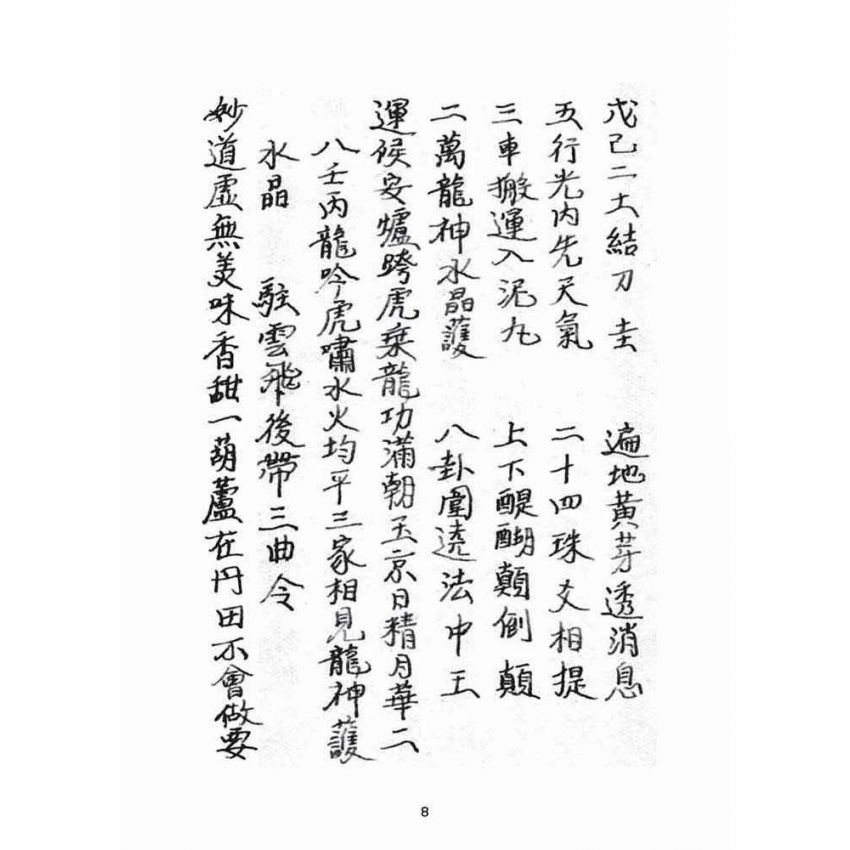 戊己二土結刀圭　遍地黃芽透消息
五行光內先天氣　二十四珠爻相提
三車搬運入泥丸　上下醍醐顛倒顛
二萬龍神水晶護　八卦圍遶法中王
運候安爐跨虎乘龍功滿朝玉京日精月華二
八壬丙龍吟虎嘯水火均平三家相見龍神護
水晶　駐雲飛後帶三曲令
妙道虛無美味香甜一葫蘆在丹田不會做要
8